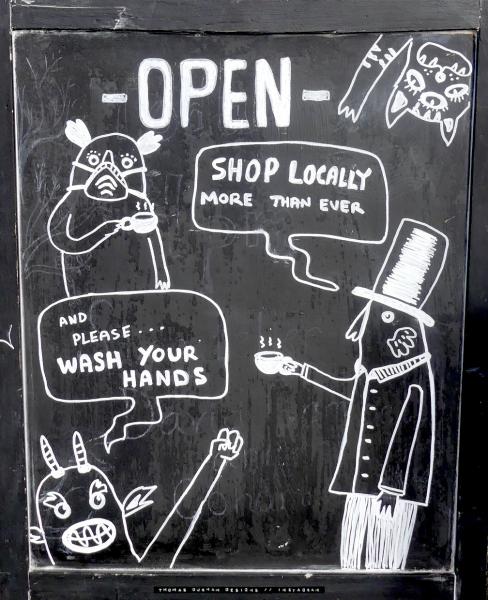 - OPEN -
SHOP LOCALLY
MORE THAN EVER
AND
PLEASE...
WASH YOUR
HANDS
THOMAS DESIGNS // INSTAGRAM